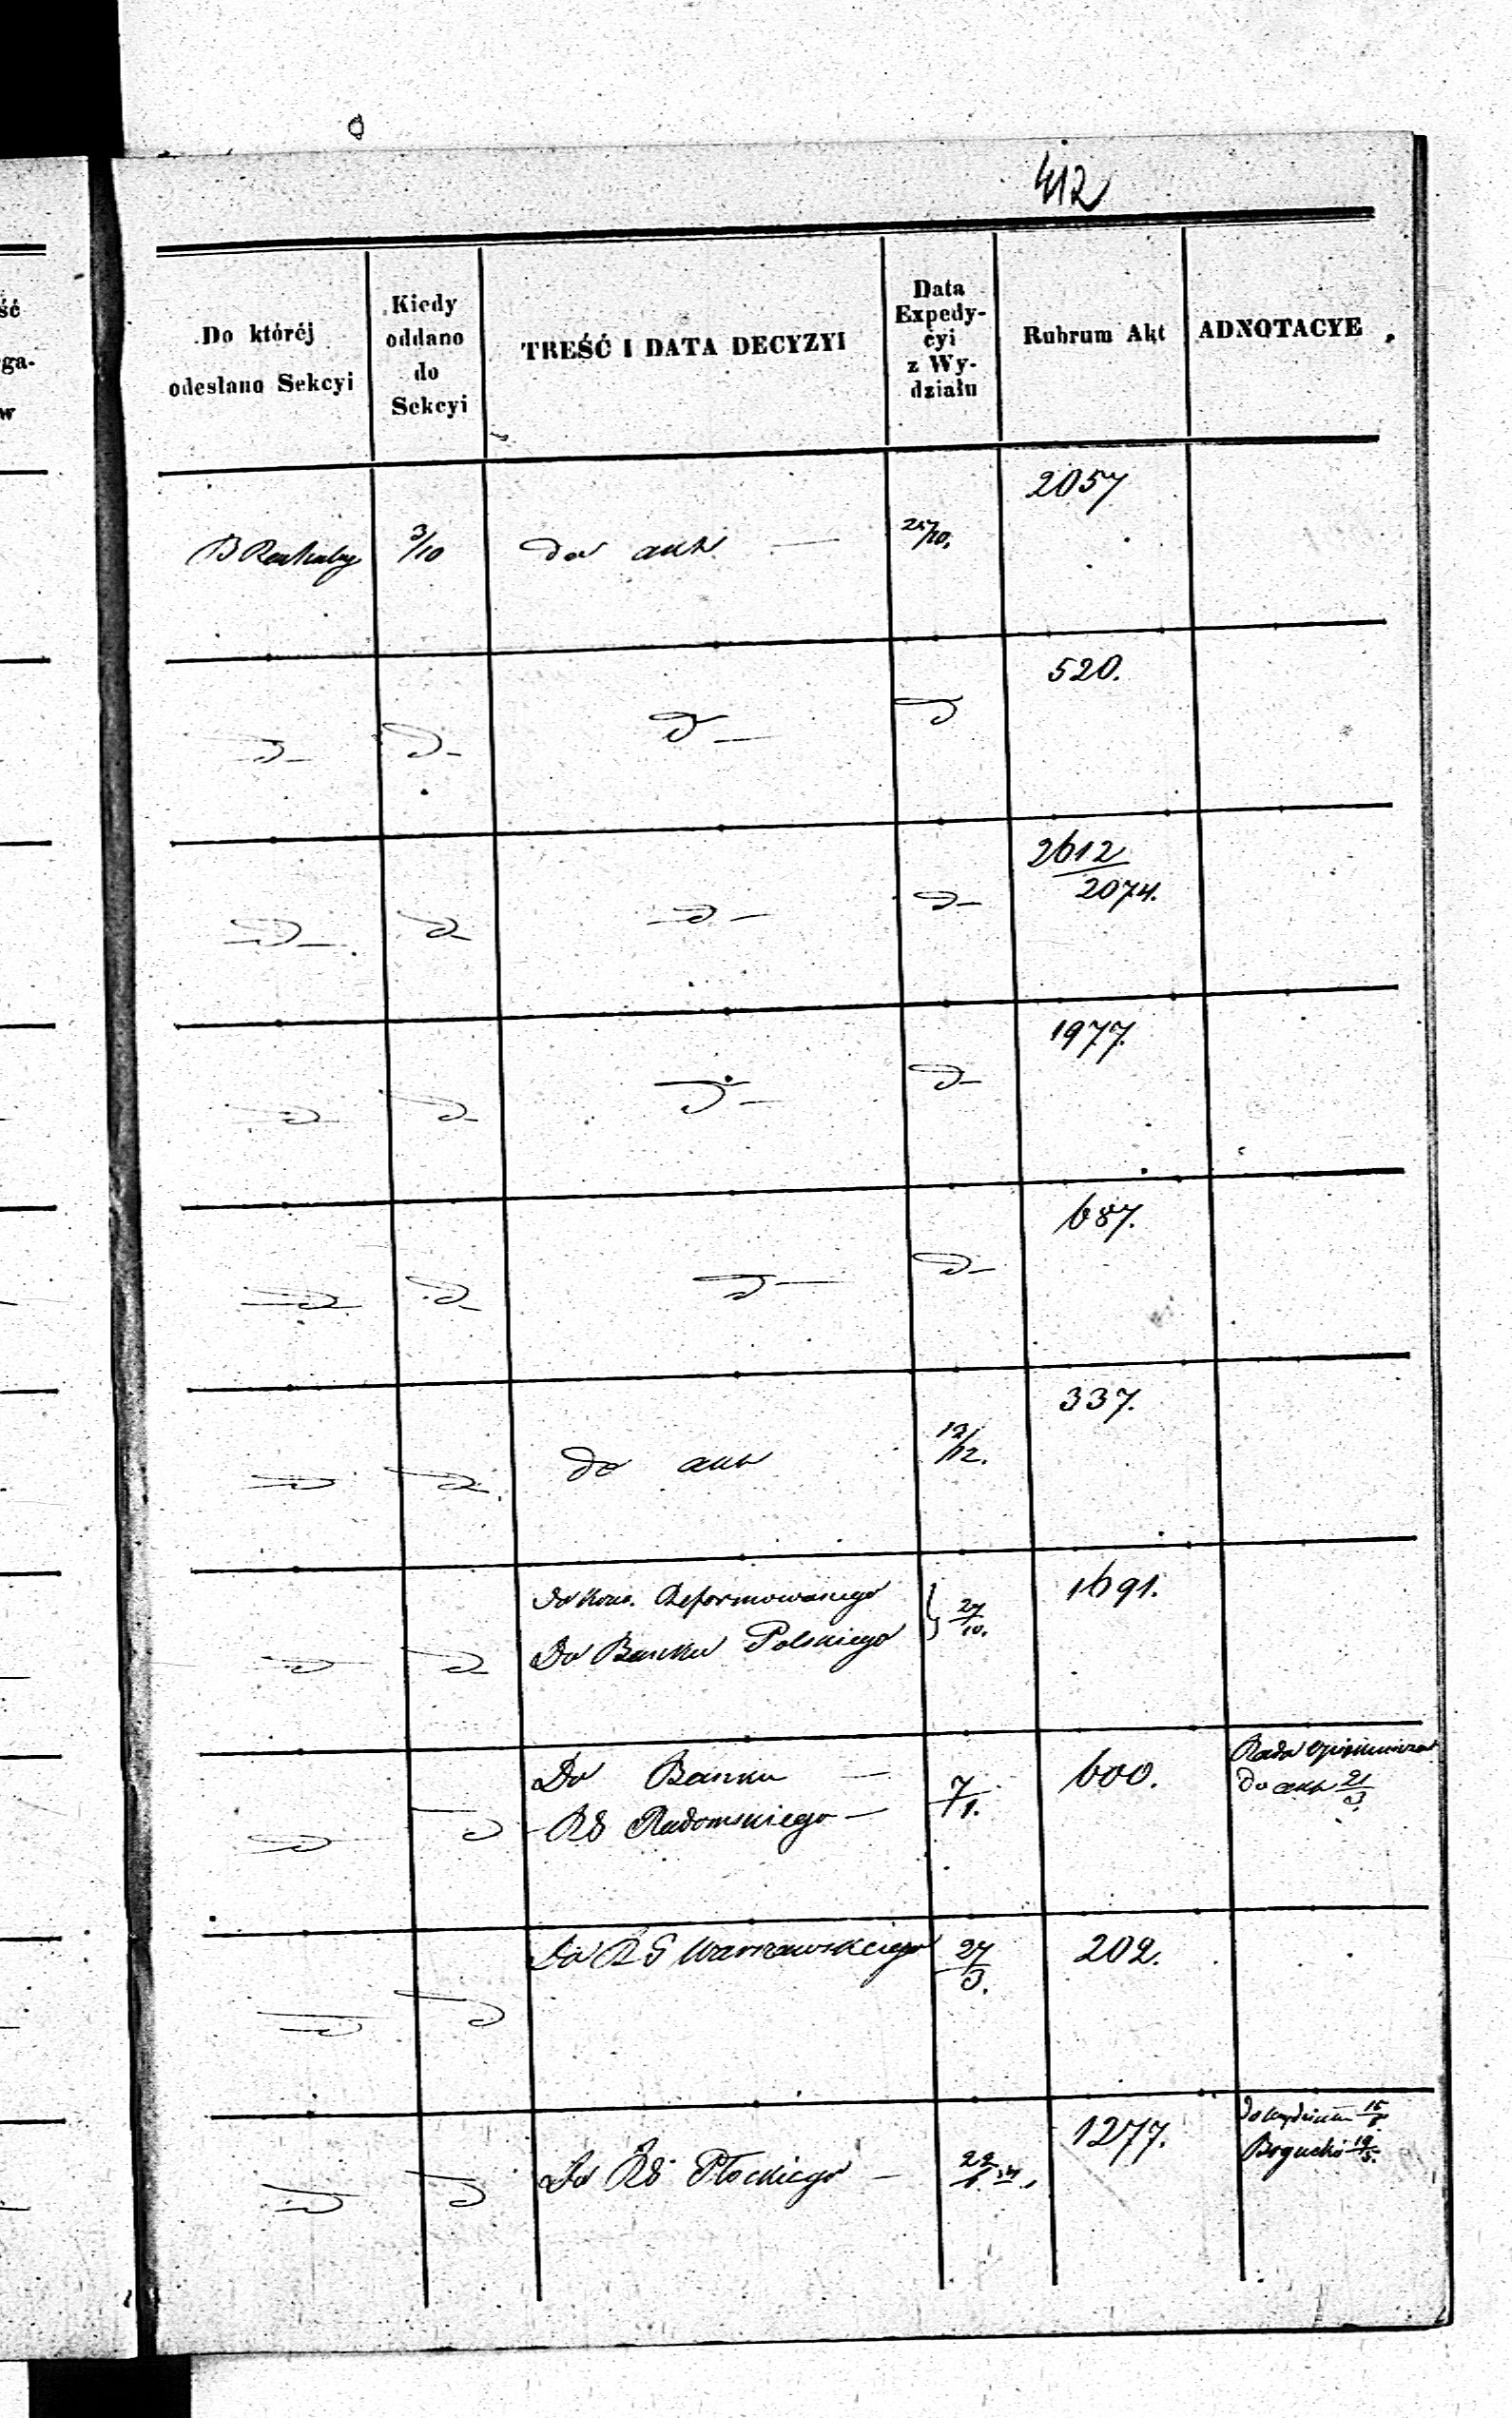 412
ść
ga-
w
Do któréj
odesłano Sekcyi
Kiedy
oddano
do
Sekcyi
TREŚĆ I DATA DECYZYI
Data
Expedy-
cyi
z Wy-
działu
Rubrum Akt
ADNOTACYE
B
3/10
do akt —
25/10.
2057
520.
2612
2074.
1977.
687.
do akt
12/12.
337.
Reformowanego
Do Banku Polskiego
27/10.
1691.
Do Banku —
RG Radomskiego —
7/1.
600.
Rada Opiekuńcza
do akt 21/3.
Do RG Warszawskiego
27/3.
202.
Do RG Płockiego —
22
1277.
Do wydziału 15
Bogucki 19/5.